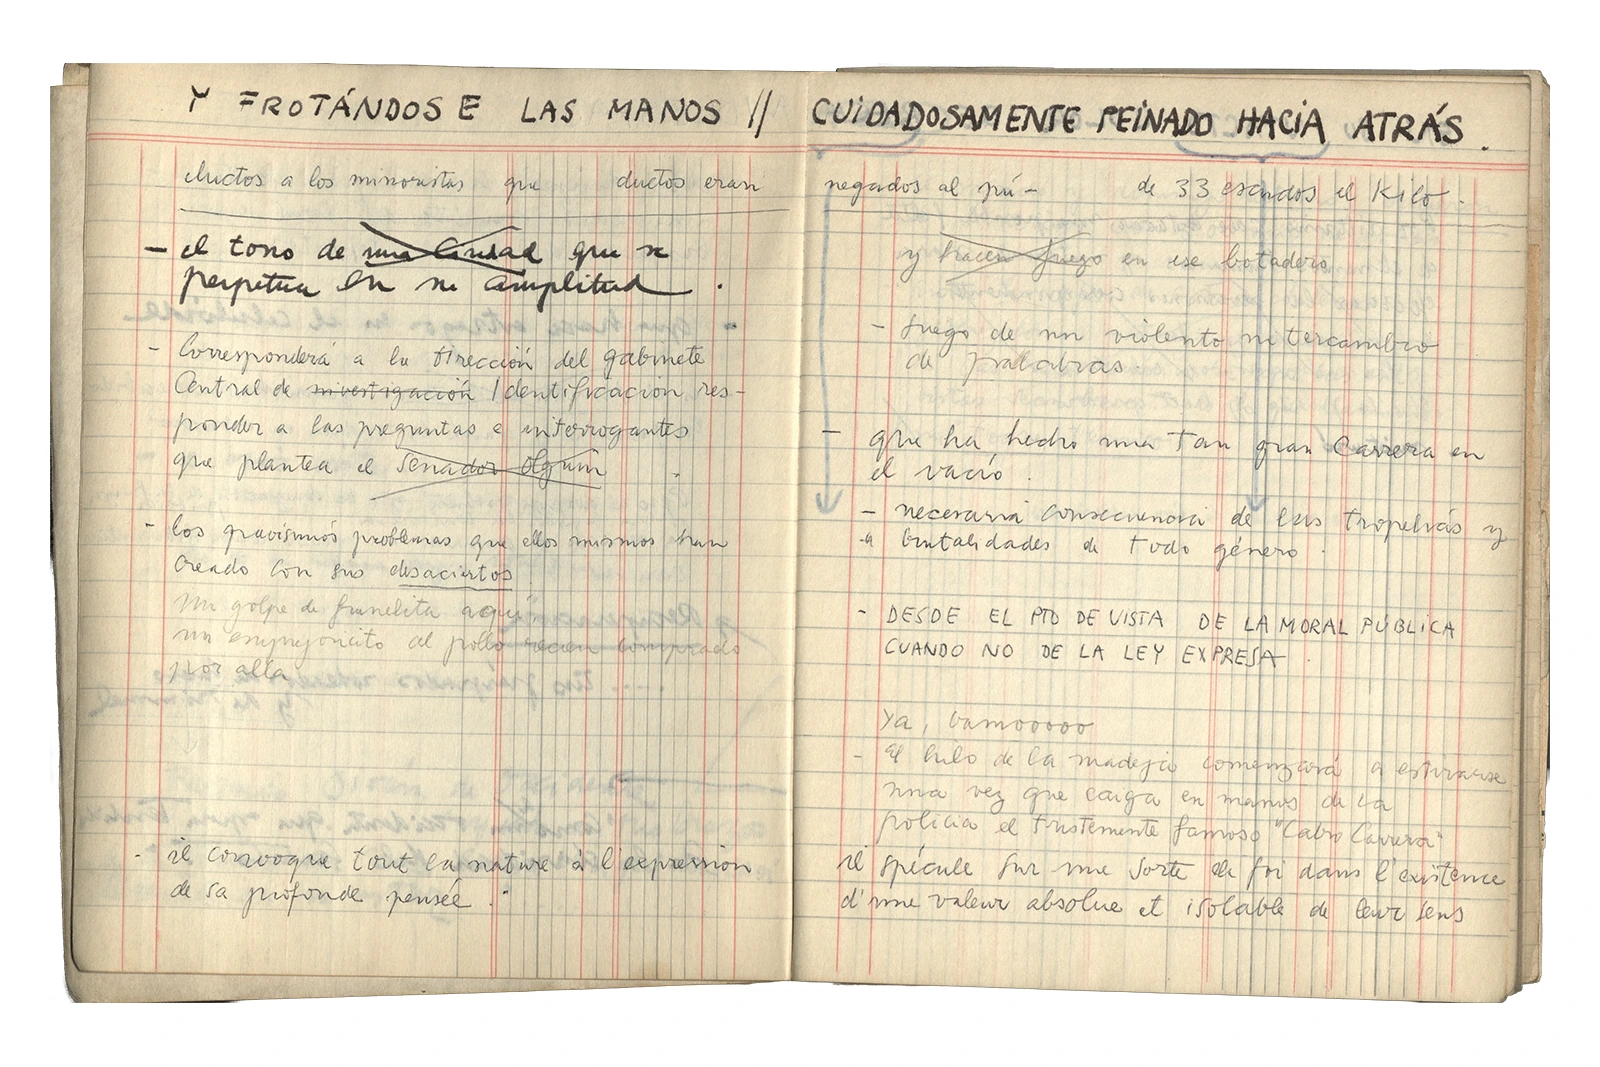 Y FROTÁNDOSE LAS MANOS //
ductos a los minoristas que ductos eran
- el tono de una Ciudad que se
perpetua en su amplitud .
- Corresponderá a la Dirección del gabinete
Central de investigación Identificacion res-
ponder a las preguntas e interrogantes
que plantea el Senador Olguín .
- los gravísimos problemas que ellos mismos han
creado con sus desaciertos.
un golpe de franelita aquí
un empujoncito al pollo recien comprado
por allá
- il convoque tout la nature à l'expression
de sa profonde pensée .
CUIDADOSAMENTE PEINADO HACIA ATRÁS .
negados al pú- de 33 escudos el Kilo .
y hacen fuego en ese botadero
- fuego de un violento intercambio
de palabras.
- que ha hecho una tan gran Carrera en
el vacío .
- necesaria consecuencia de las tropelías y
a brutalidades de todo género .
- DESDE EL PTO DE VISTA DE LA MORAL PÚBLICA
CUANDO NO DE LA LEY EXPRESA .
Ya, vamooooo
- el hilo de la madeja comenzará a estirarse
una vez que caiga en manos de la
policia el tristemente famoso "Cabro Carrera"
il spécule sur une sorte de foi dans l'existence
d'une valeur absolue et isolable de leur sens